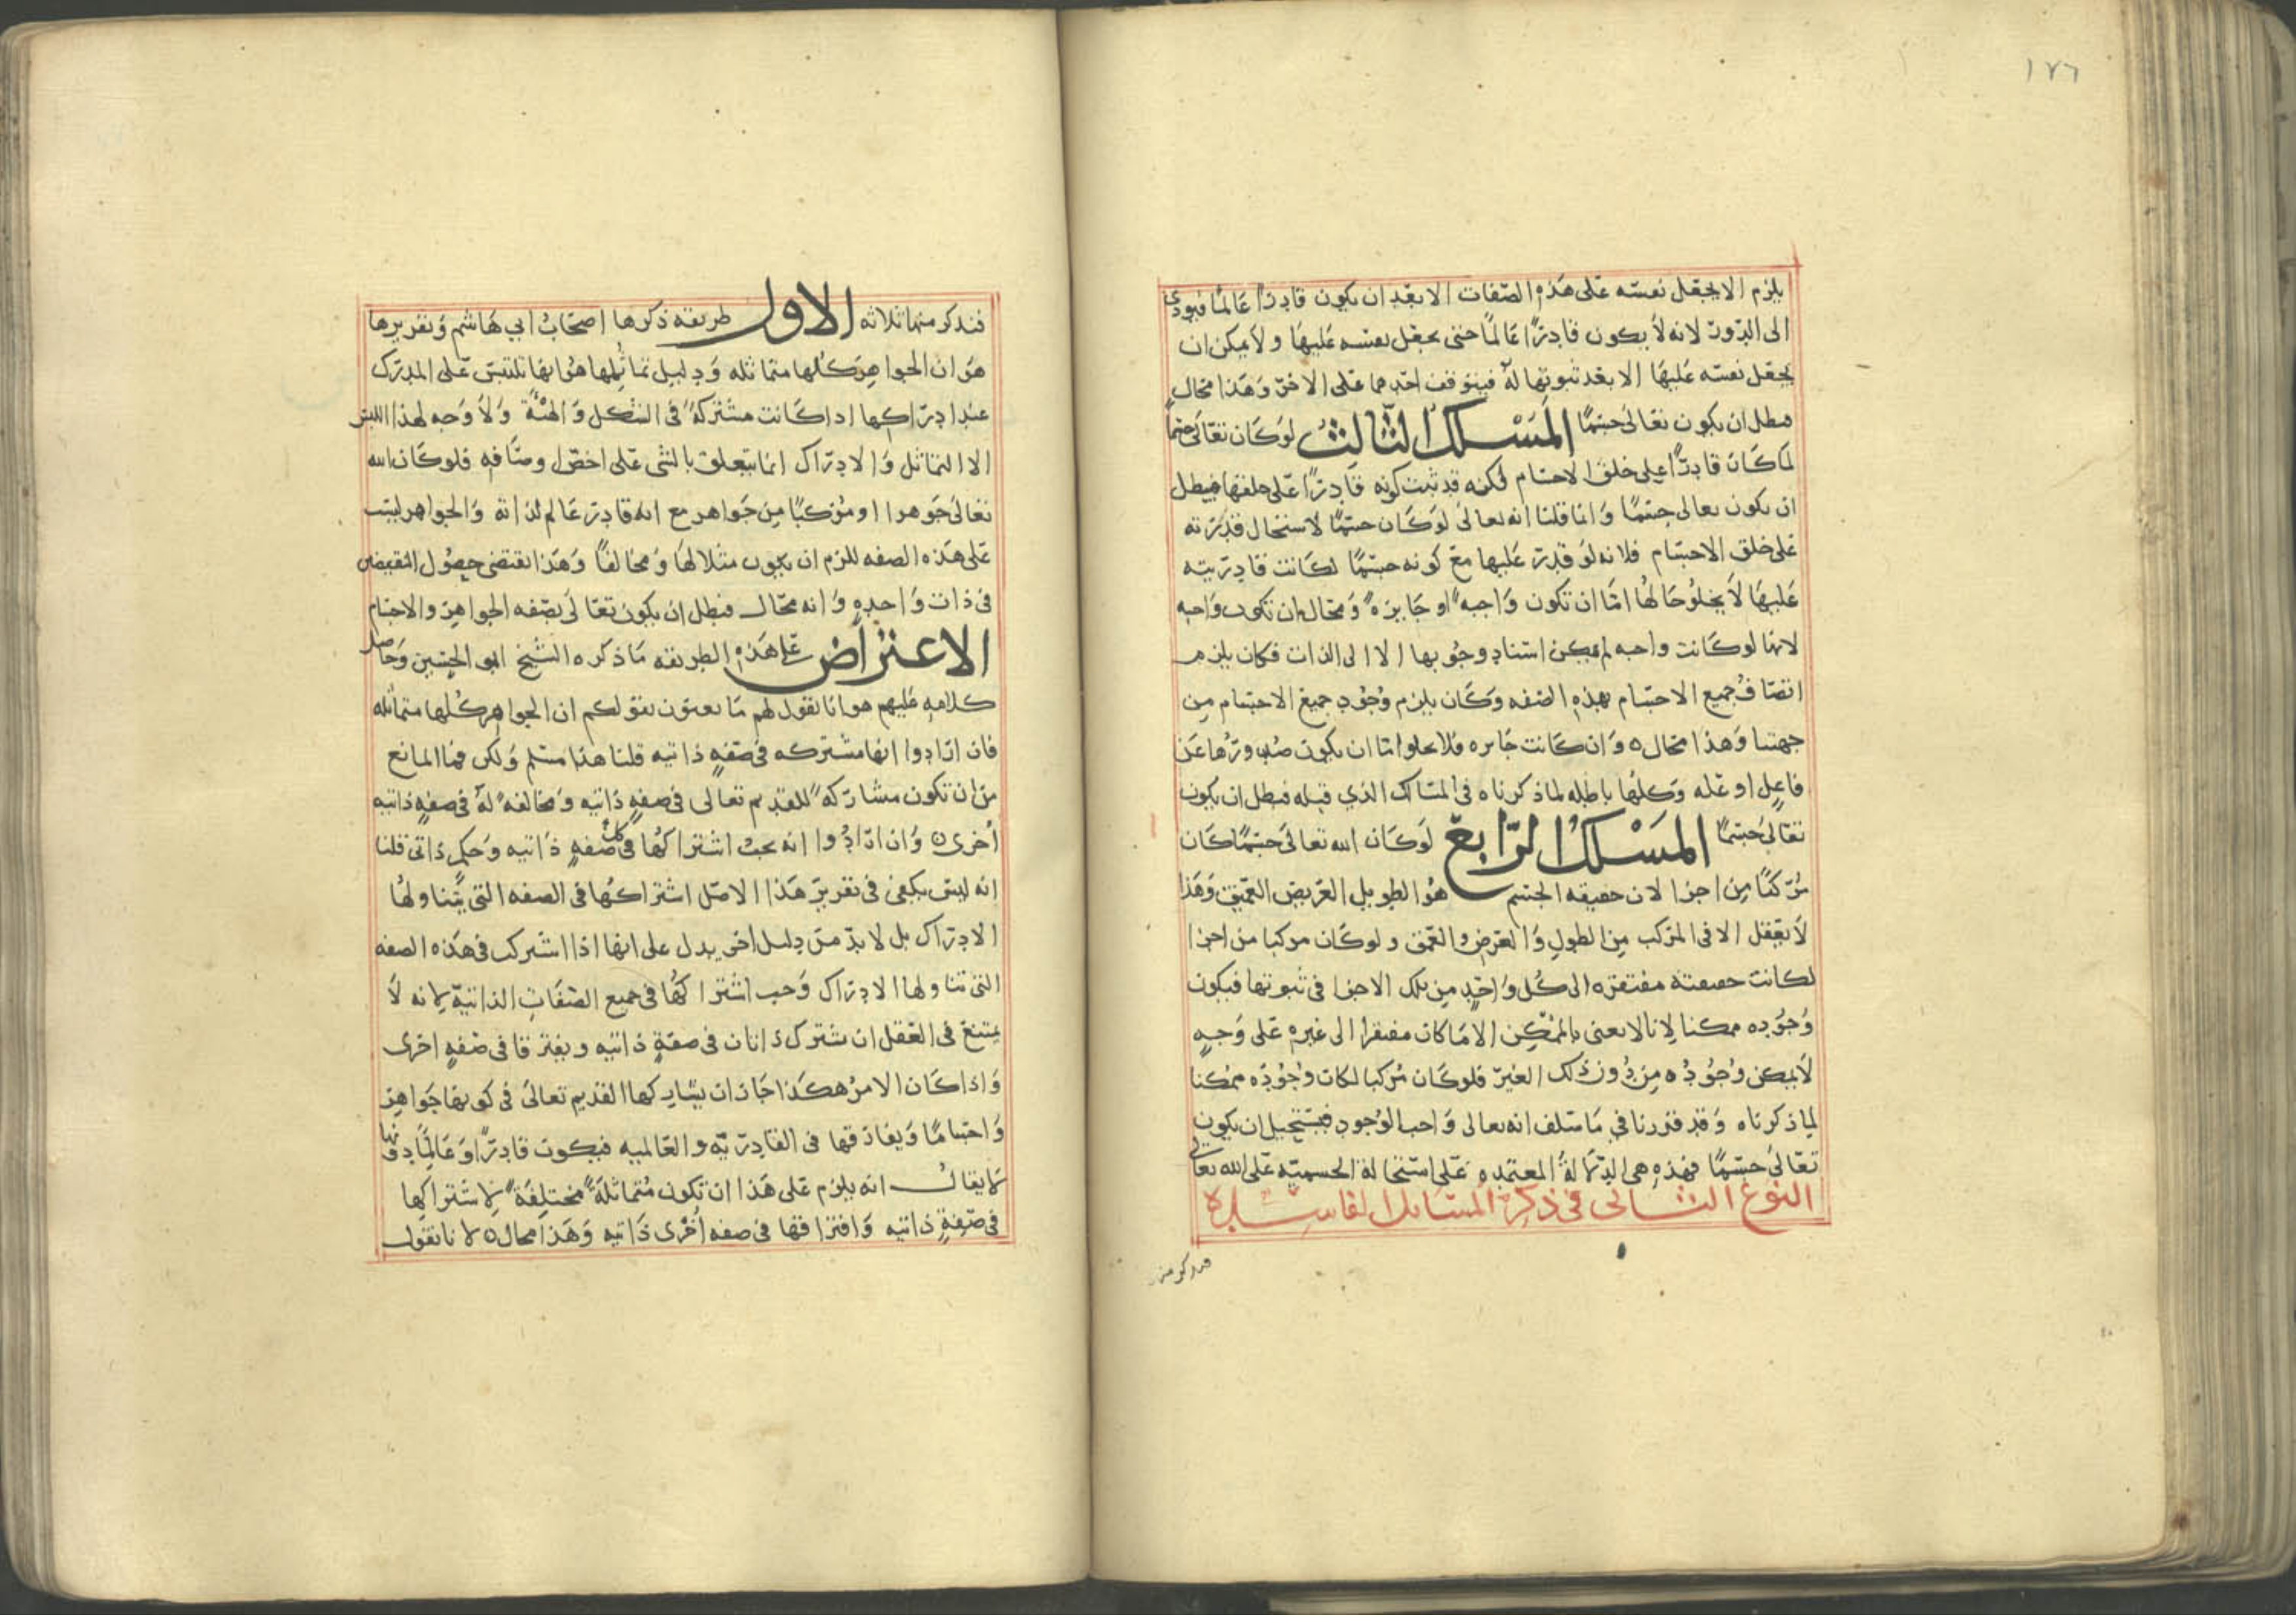 ١٧٦
يلزم الا يجعل نفسه على هذه الصفات الا بعد ان يكون قادرًا عالمًا فيودي
الى الدور لانه لا يكون قادرًا عالمًا حتى يجعل نفسه عليها ولا يمكن ان
يجعل نفسه عليها الا بعد ثبوتها له فيتوقف احدهما على الاخر وهذا محال
فبطل ان يكون تعالى جسمًا المسلك الثالث لو كان تعالى جسمًا
لما كان قادرًا على خلق الاجسام لكنه قد ثبت كونه قادرًا على خلقها فبطل
ان يكون تعالى جسمًا وانما قلنا انه تعالى لو كان جسمًا لاستحال قدرته
على خلق الاجسام فلانه لو قدر عليها مع كونه جسمًا لكانت قادريته
عليها لا يخلو حالها اما ان تكون واجبة او جايزة ومحال ان تكون واجبه
لانها لو كانت واجبه لم يمكن استناد وجوبها الا الى الذات فكان يلزم
اتصاف جميع الاجسام بهذه الصفه وكان يلزم وجود جميع الاجسام من
جهتنا وهذا محال ٥ وان كانت جايزه فلا يخلوا اما ان يكون صدورها عن
فاعل او عله وكلها باطله لما ذكرناه في المسلك الذي قبله فبطل ان يكون
تعالى جسمًا المسلك الرابع لو كان الله تعالى جسمًا كان
مركبًا من اجزا لان حقيقه الجسم هو الطويل العريض العميق وهذا
لا يعقل الا في المركب من الطول والعرض والعمق ولو كان مركبا من اجزا
لكانت حقيقته مفتقره الى كل واحد من تلك الاجزا في ثبوتها فيكون
وجوده ممكنا لانا لا نعني بالممكن الا ما كان مفتقرا الى غيره على وجه
لا يمكن وجوده من دون ذلك الغير فلو كان مركبا لكان وجوده ممكنا
لما ذكرناه وقد قررنا في ما سلف انه تعالى واجب الوجود فيستحيل ان يكون
تعالى جسمًا فهذه هي الدلالة المعتمده على استحالة الجسميه على الله تعالى
النوع الثاني في ذكر المسالك الفاسده
فنذكر منها
فنذكر منها ثلاثه الاول طريقه ذكرها اصحاب ابي هاشم وتقريرها
هو ان الجواهر كلها متماثله ودليل تماثلها هو انها تلتبس على المدرك
عند ادراكها اذا كانت مشتركة في الشكل والهيئة ولا وجه لهذا اللبس
الا التماثل والادراك انما يتعلق بالشي على اخص اوصافه فلو كان الله
تعالى جوهرا او مركبًا من جواهر مع انه قادر عالم لذاته والجواهر ليست
على هذه الصفه للزم ان يكون مثلا لها ومخالفًا وهذا يقتضي حصول النقيضين
في ذات واحده وانه محال فبطل ان يكون تعالى بصفه الجواهر والاجسام
الاعتراض على هذه الطريقه ما ذكره الشيخ ابو الحسين وحاصل
كلامه عليهم هو انا نقول لهم ما تعنون بقولكم ان الجواهر كلها متماثله
فان ارادوا انها مشتركه في صفه ذاتيه قلنا هذا مسلم ولكن فما المانع
من ان تكون مشاركة للقديم تعالى في صفه ذاتيه ومخالفة له في صفه ذاتيه
اخرى ٥ وان ارادوا انه يجب اشتراكها في كل صفه ذاتيه وحكم ذاتي قلنا
انه ليس يكفي في تقرير هذا الاصل اشتراكها في الصفه التي يتناولها
الادراك بل لا بد من دليل اخر يدل على انها اذا اشتركت في هذه الصفه
التي تناولها الادراك وجب اشتراكها في جميع الصفات الذاتية لانه لا
يمتنع في العقل ان تشترك ذاتان في صفة ذاتيه ويفترقا في صفه اخرى
واذا كان الامر هكذا جاز ان يشاركها القديم تعالى في كونها جواهر
واجسامًا ويفارقها في القادرية والعالميه فيكون قادرًا وعالمًا دونها
لا يقال انه يلزم على هذا ان تكون متماثلة مختلفة لاشتراكها
في صفة ذاتيه وافتراقها في صفه اخرى ذاتيه وهذا محال ٥ لانا نقول